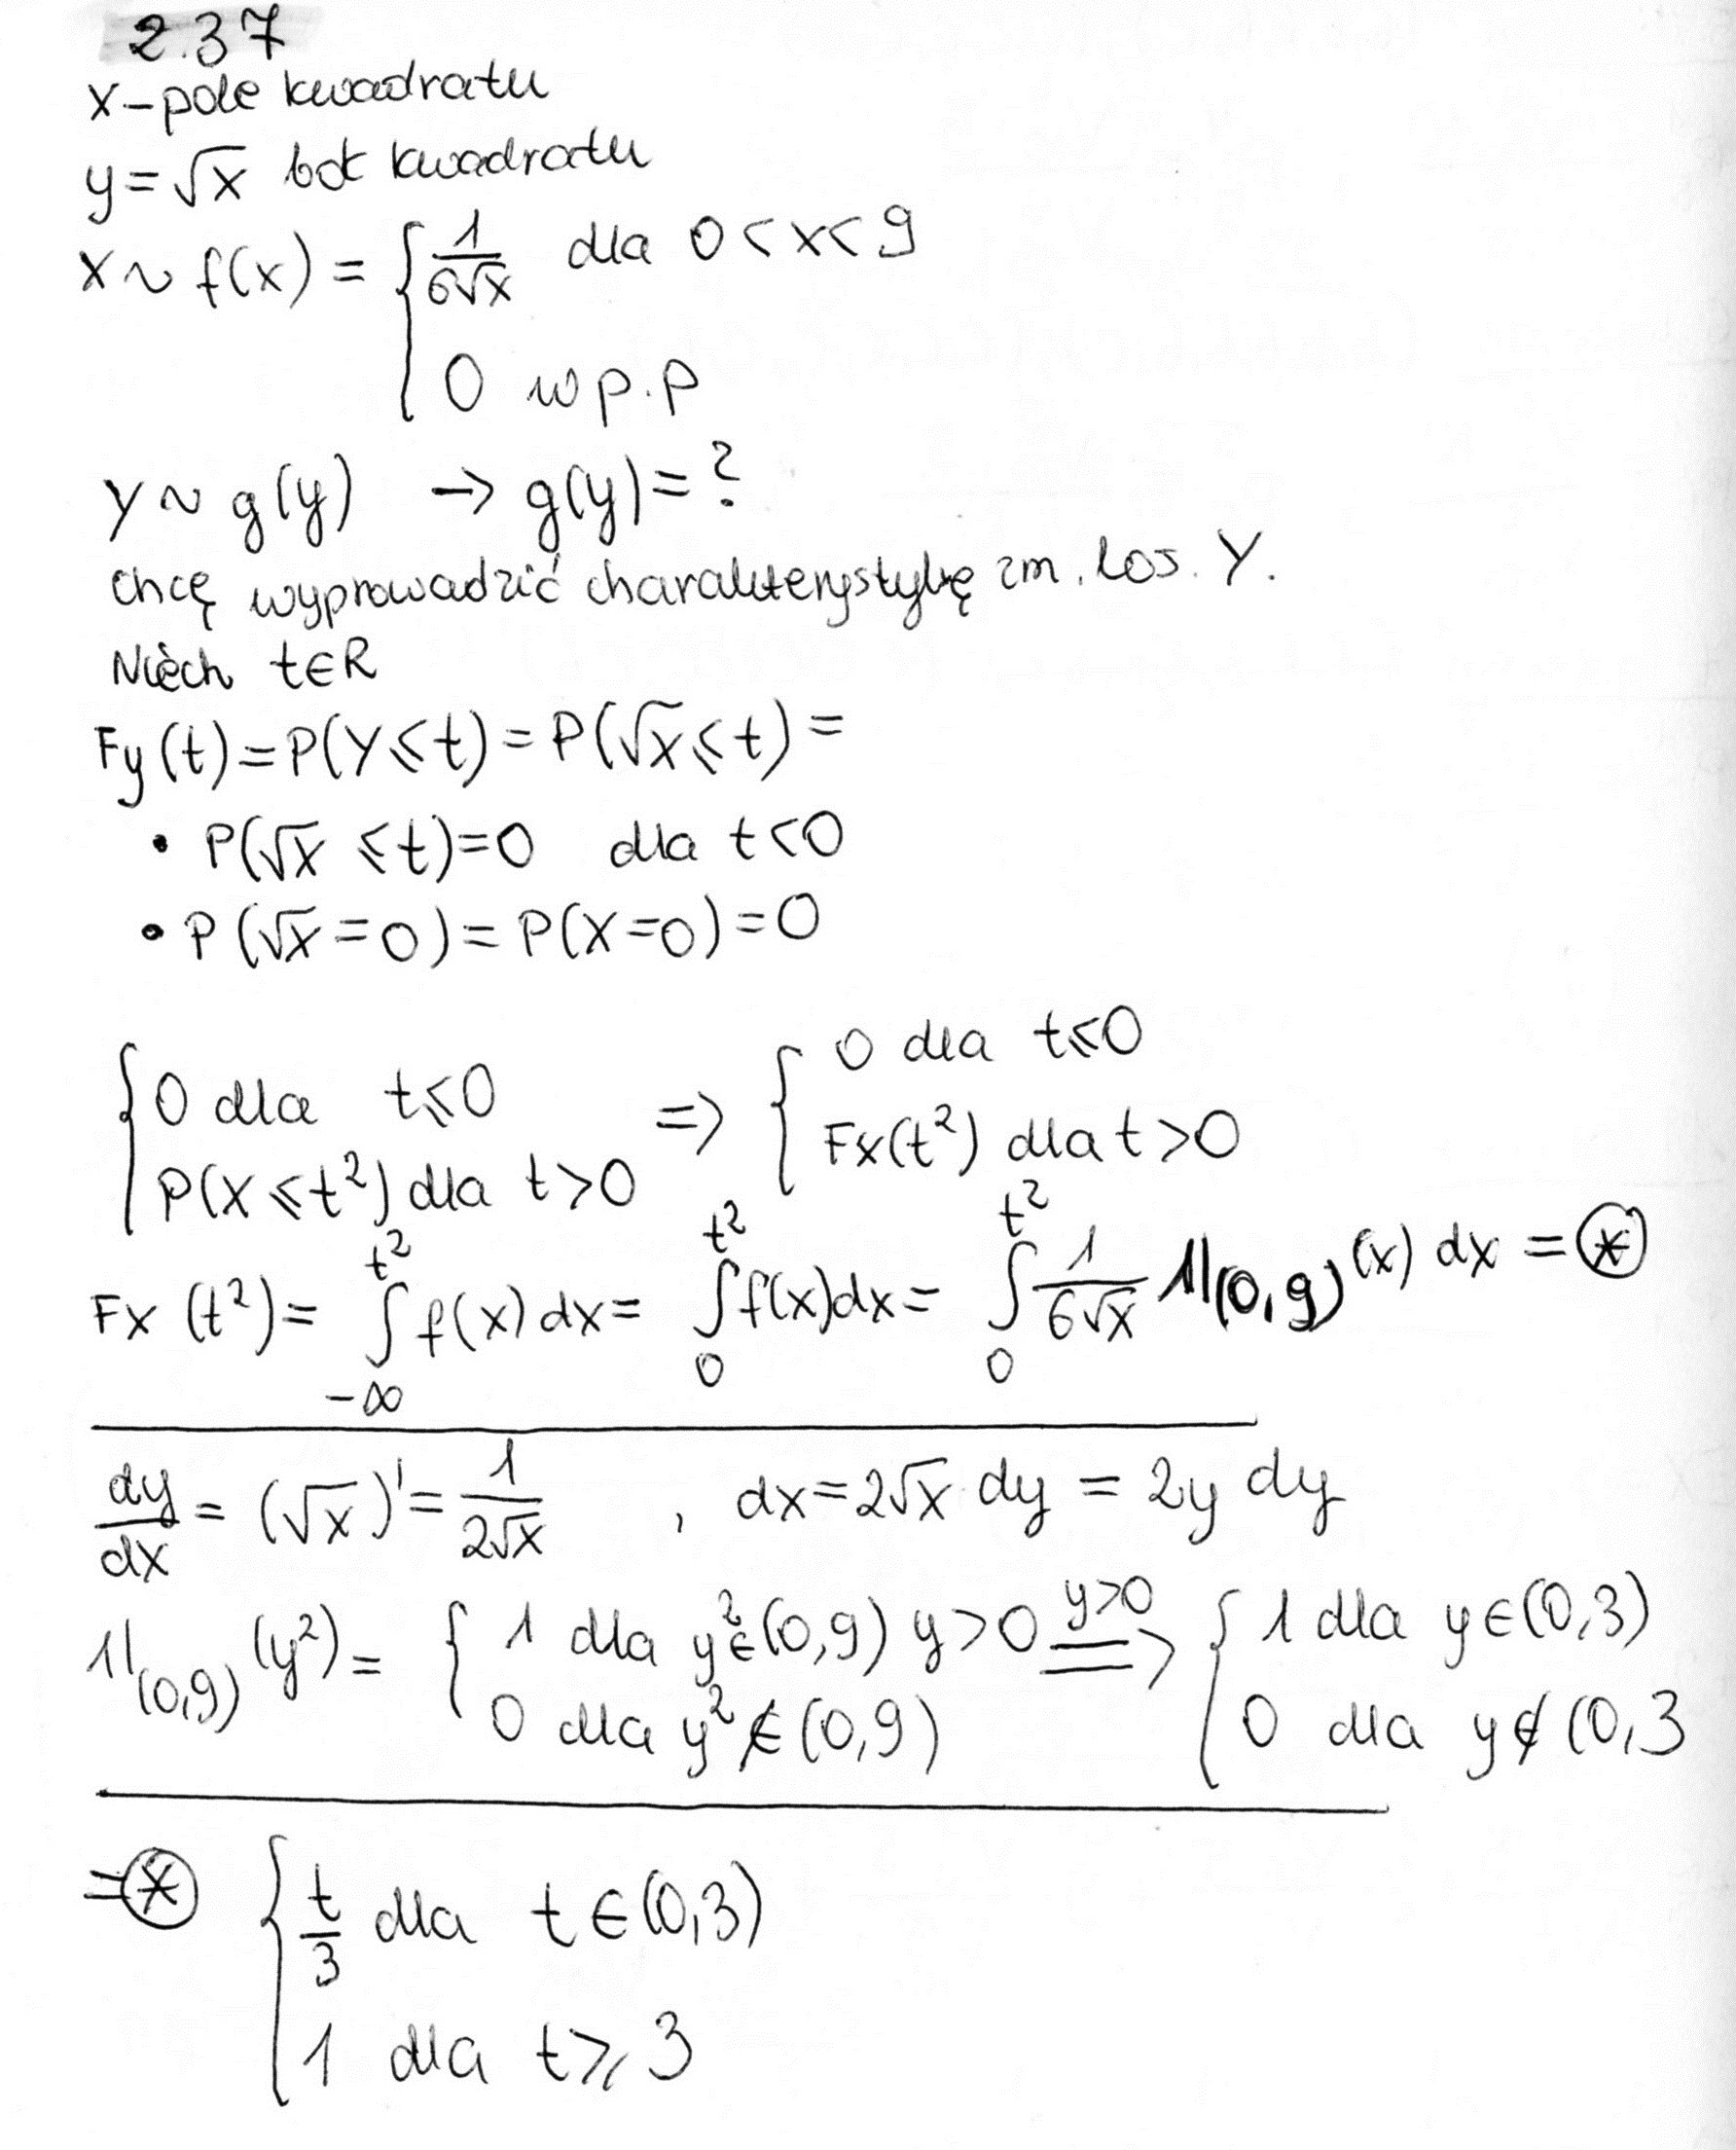 2.37
X-pole kwadratu
y=√x bok kwadratu
X~ f(x) = { 1/(6√x) dla 0<x<9
0 w p.p
Y~ g(y) → g(y)=?
chcę wyprowadzić charakterystykę zm. los. Y.
Niech t∈R
Fy(t)=P(Y⩽t)=P(√x⩽t)=
• P(√x ⩽t)=0 dla t<0
• P(√x=0)=P(X=0)=0
{ 0 dla t⩽0 => { 0 dla t⩽0
P(X⩽t²) dla t>0 Fx(t²) dla t>0
Fx(t²)= ∫_{-∞}^{t²} f(x)dx= ∫_0^{t²} f(x)dx= ∫_0^{t²} 1/(6√x) 1|(0,9)(x) dx = ⊛
dy/dx = (√x)'= 1/(2√x) , dx=2√x dy = 2y dy
1|(0,9)(y²)= { 1 dla y²∈(0,9) y>0 =y>0=> { 1 dla y∈(0,3)
0 dla y²∉(0,9) 0 dla y∉(0,3
=⊛ { t/3 dla t∈(0,3)
1 dla t⩾3